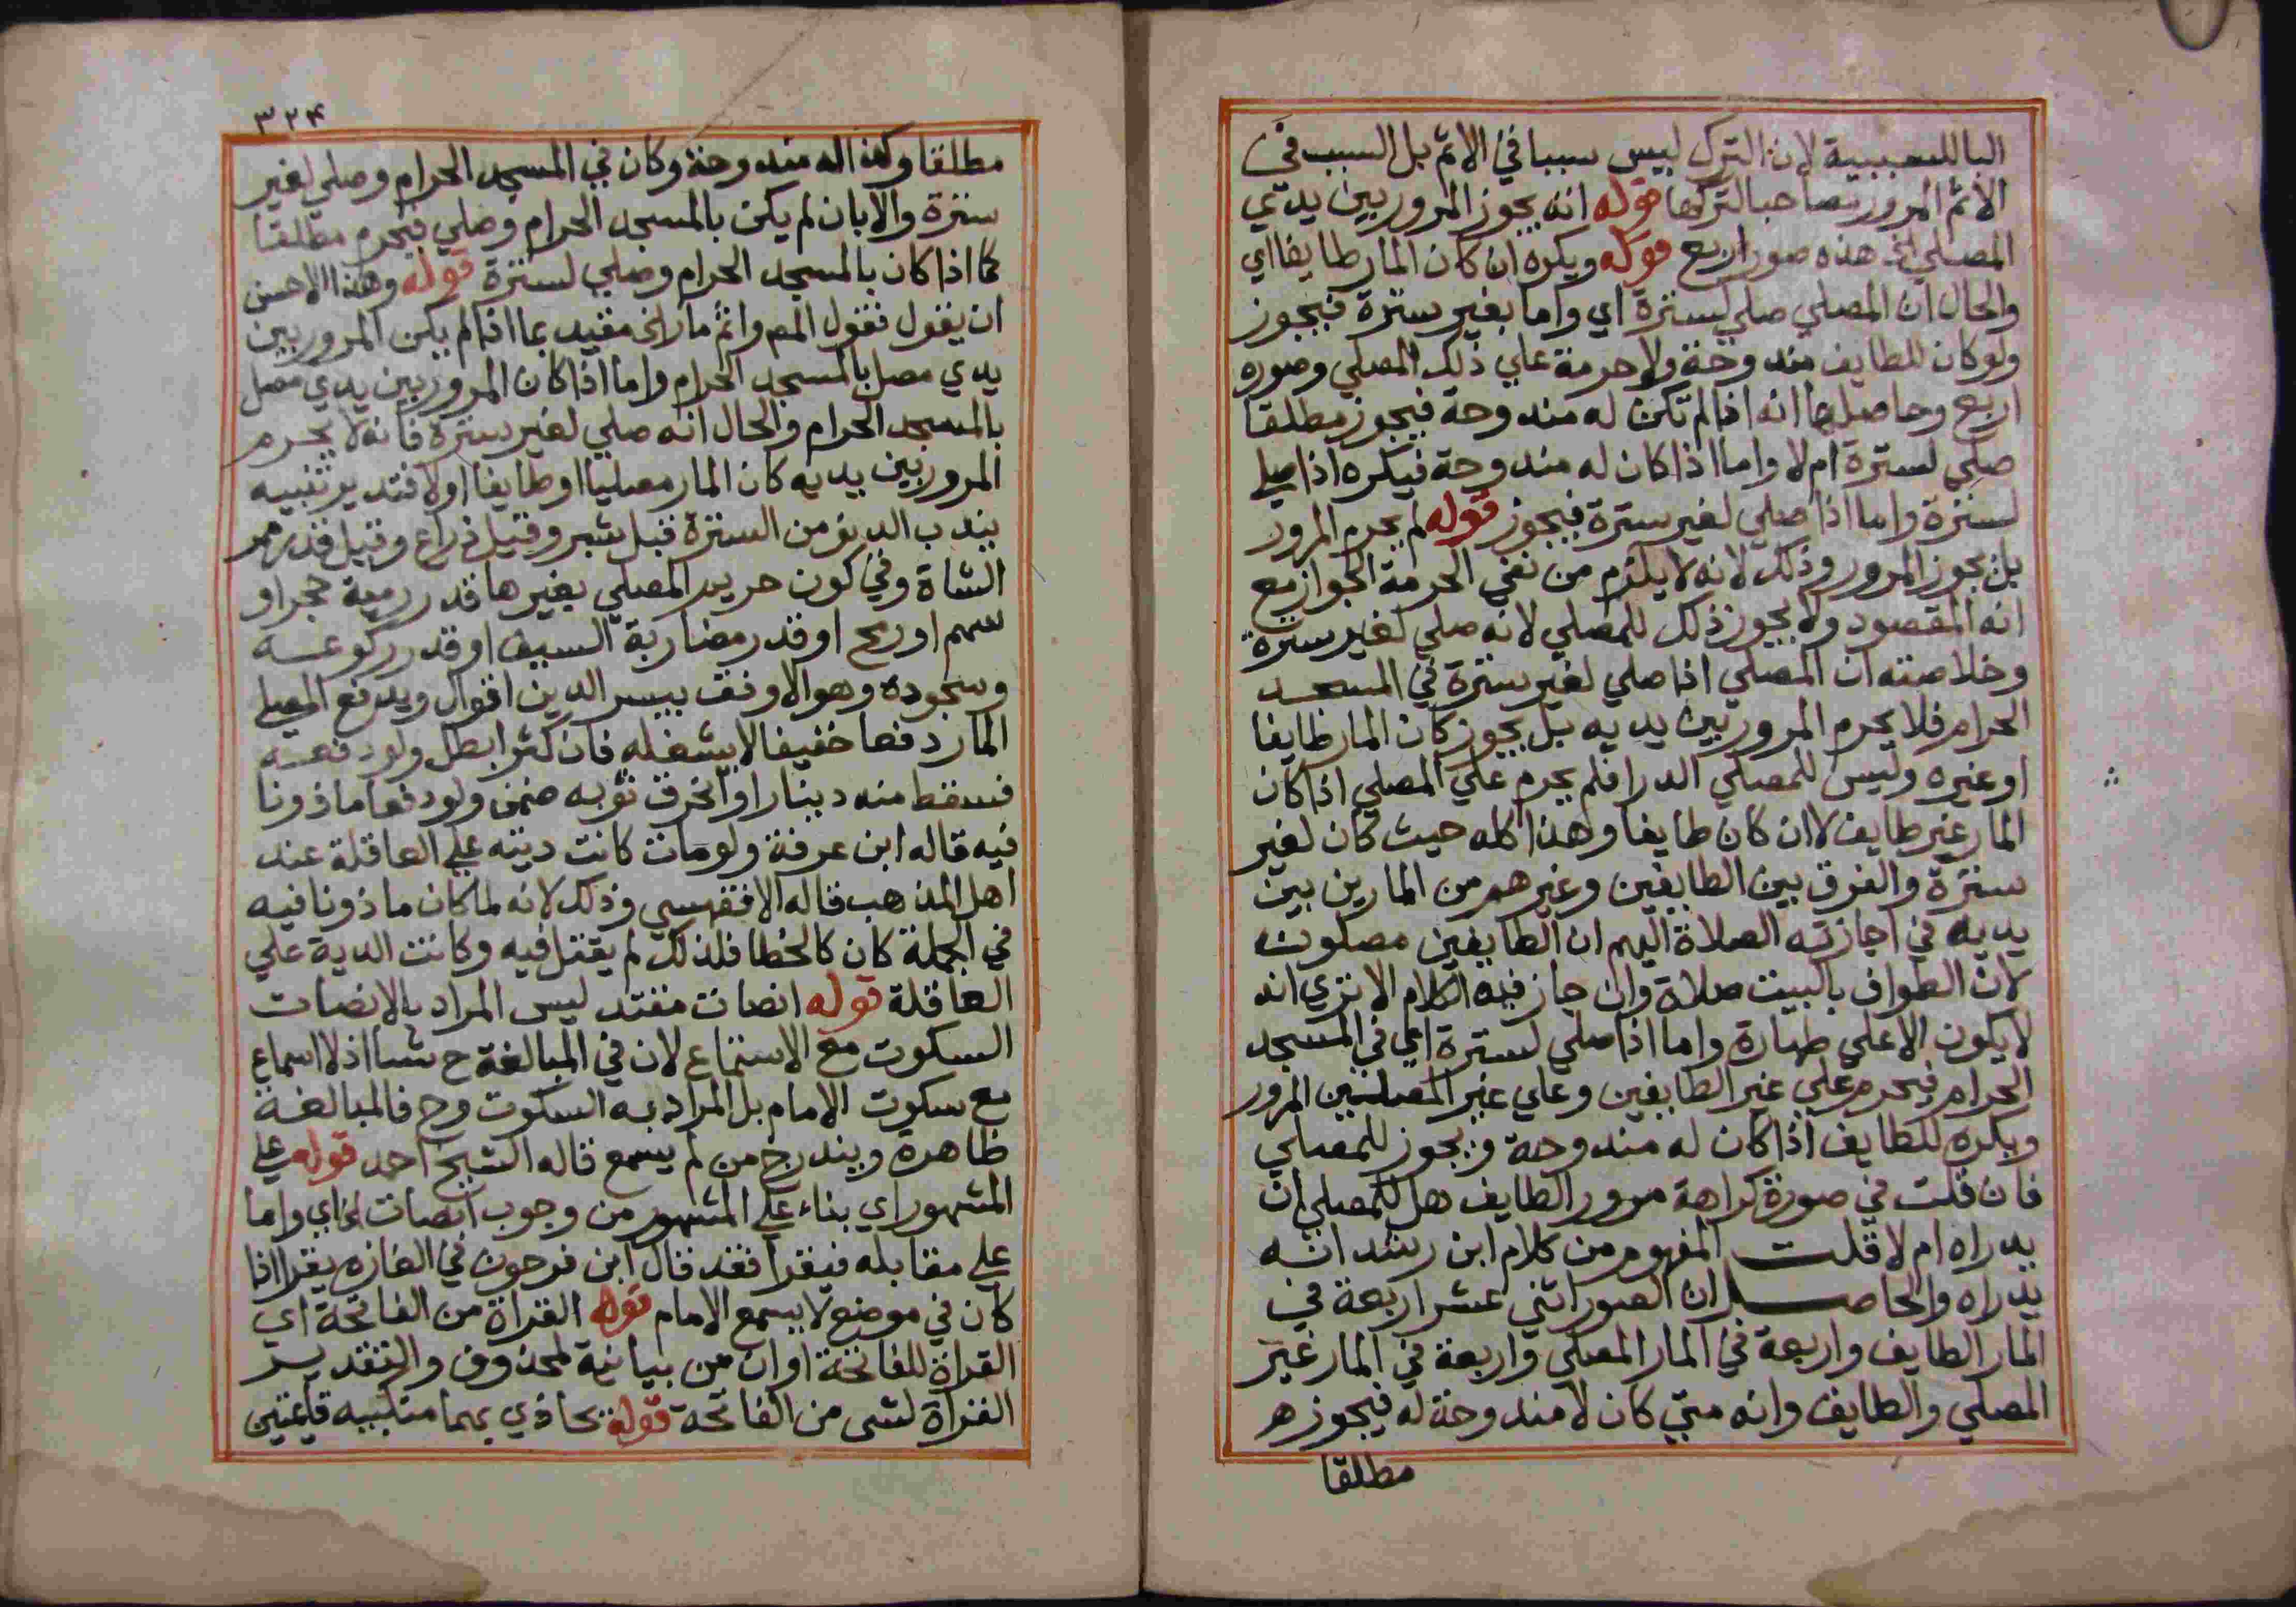 البا للسببية لان الترك ليس سببا في الاثم بل السبب في
الاثم المرور مصاحبا لتركها قوله انه يجوز المرور بين يدي
المصلي الخ هذه صور اربع قوله ويكره ان كان المار طايفا اي
والحال ان المصلي صلي لسترة اي واما بغير سترة فيجوز
ولو كان للطايف مندوحة ولا حرمة علي ذلك المصلي وصوره
اربع وحاصلها انه اذا لم تكن له مندوحة فيجوز مطلقا
صلي لسترة ام لا واما اذا كان له مندوحة فيكره اذا صلي
لسترة واما اذا صلي لغير سترة فيجوز قوله لم يحرم المرور
بل يجوز المرور وذلك لانه لا يلزم من نفي الحرمة الجواز مع
انه المقصود ولا يجوز ذلك للمصلي لانه صلي لغير سترة
وخلاصته ان المصلي اذا صلي لغير سترة في المسجد
الحرام فلا يحرم المرور بين يديه بل يجوز كان المار طايفا
او غيره وليس للمصلي الدرا فلم يحرم علي المصلي اذا كان
المار غير طايف لا ان كان طايفا وهذا كله حيث كان لغير
سترة والفرق بين الطايفين وغيرهم من المارين بين
يديه في اجازته الصلاة اليهم ان الطايفين مصلون
لان الطواف بالبيت صلاة وان جاز فيه الكلام الا تري انه
لا يكون الا علي طهارة واما اذا صلي لسترة اي في المسجد
الحرام فيحرم علي غير الطايفين وعلي غير المصلين المرور
ويكره للطايف اذا كان له مندوحة ويجوز للمصلي
فان قلت في صورة كراهة مرور الطايف هل للمصلي ان
يدراه ام لا قلت المفهوم من كلام ابن رشد انه
يدراه والحاصل ان الصور اثني عشر اربعة في
المار الطايف واربعة في المار المصلي واربعة في المار غير
المصلي والطايف وانه متي كان لا مندوحة له فيجوز
مطلقا
٣٢٤
مطلقا وكذا اله مندوحة وكان في المسجد الحرام وصلي لغير
سترة والا بان لم يكن بالمسجد الحرام وصلي فيحرم مطلقا
كما اذا كان بالمسجد الحرام وصلي لسترة قوله وهذا الاحسن
ان يقول فقول المص واثم مار الخ مقيد بما اذا لم يكن المرور بين
يدي مصل بالمسجد الحرام واما اذا كان المرور بين يدي مصل
بالمسجد الحرام والحال انه صلي لغير سترة فانه لا يحرم
المرور بين يديه كان المار مصليا او طايفا او لا فتدبر تنبيه
يندب الدنو من السترة قيل شبر وقيل ذراع وقيل قدر ممر
الشاة وفي كون حريم المصلي بغيرها قدر رمية حجر او
سهم او رمح او قدر مضاربة السيف او قدر ركوعه
وسجوده وهو الاوفق بيسر الدين اقوال ويدفع المصلي
المار دفعا خفيفا لا يشغله فان كثر ابطل ولو دفعه
فسقط منه دينار او انخرق ثوبه ضمن ولو دفعا ماذونا
فيه قاله ابن عرفة ولو مات كانت ديته علي العاقلة عند
اهل المذهب قاله الاقفهسي وذلك لانه لما كان ماذونا فيه
في الجملة كان كالخطا فلذلك لم يقتل فيه وكانت الدية علي
العاقلة قوله انصات مقتد ليس المراد بالانصات
السكوت مع الاستماع لان في المبالغة ح شيا اذ لا اسماع
مع سكوت الامام بل المراد به السكوت وح فالمبالغة
ظاهرة ويندرج من لم يسمع قاله الشيخ احمد قوله علي
المشهور اي بناء علي المشهور من وجوب انصات الخ اي واما
علي مقابله فيقرا فقد قال ابن فرحون في الغازه يقرا اذا
كان في موضع لا يسمع الامام قوله القراة من الفاتحة اي
القراة للفاتحة او ان من بيانية لمحذوف والتقدير
القراة لشي من الفاتحة قوله يحاذي بهما منكبيه قايمتين